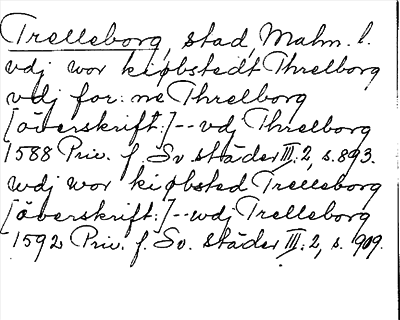 Trelleborg, stad, Malm. l.
vdj wor kiøbstedt Threlborg
vdj for: ne Threlborg
[överskrift:]--vdj Threlborg
1588 Priv. f. Sv. städer III: 2, s. 893.
wdj wor kiøbsted Trelleborg
[överskrift:]--wdj Trelleborg
1592 Priv. f. Sv. städer III: 2, s. 909.